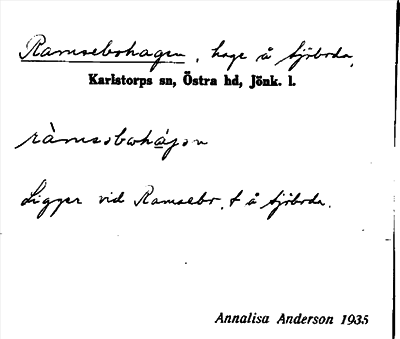 Ramsebohagen, hage å Sjöboda,
Karlstorps sn, Östra hd, Jönk. l.
ràmsəbωhá̲gən
Ligger vid Ramsebo, t å Sjöboda.
Annalisa Anderson 1935